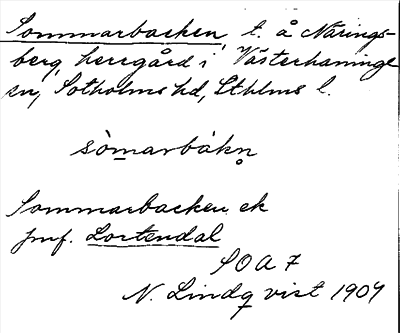 Sommarbacken, t. å Närings-
berg, herrgård i Västerhaninge
sn, Sotholms hd, Sthlms l.
sòmarbàkn̥
Sommarbacken ek
jmf. Lortendal
SOA 7
N. Lindqvist 1909